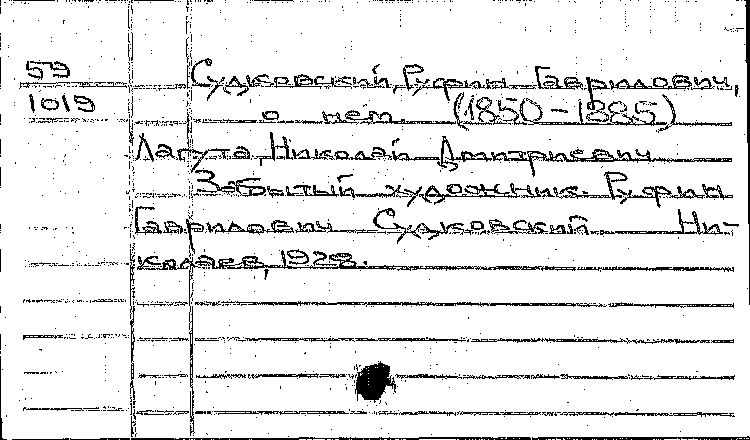 59
1019
Судковский, Руфин Гаврилович,
о нем. (1850-1885)
Лагута, Николай Дмитриевич
Забытый художник. Руфин
Гаврилович Судковский. Ни-
колаев, 1928.